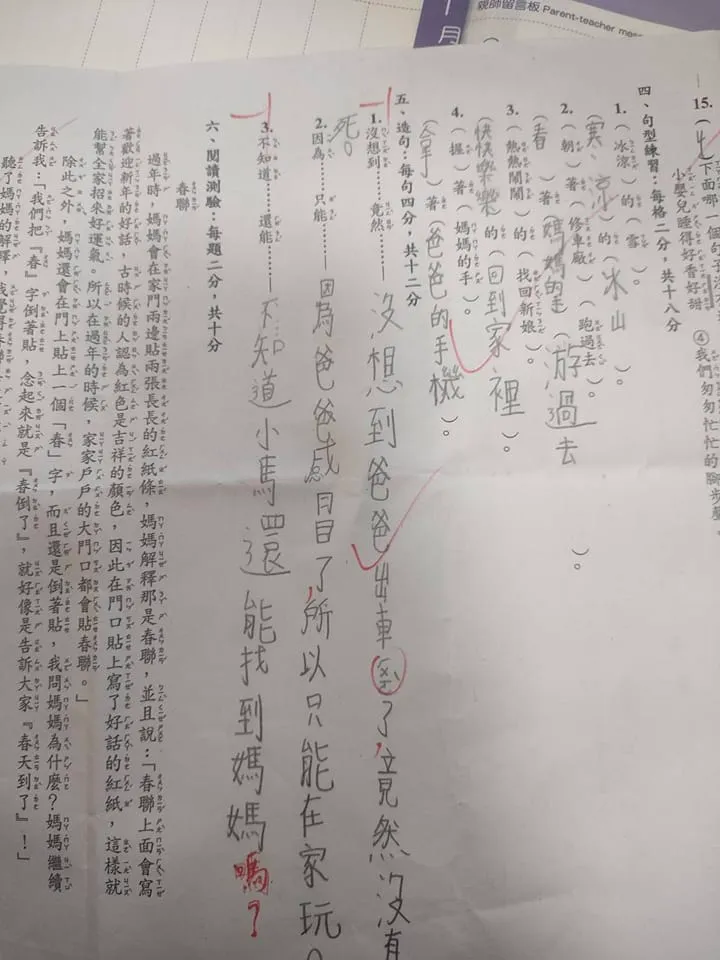 親師留言板 Parent-teacher mes
月
15.（4）下面哪一個句
小嬰兒睡得好香好甜 ④我們匆匆忙忙的腳步聲。
四、句型練習：每格二分，共十八分
1.（冰涼）的（雪）。
（寒、涼）的（冰山）。
2.（朝）著（修車廠）（跑過去）。
（看）著（媽媽的手）（游過去）。
3.（熱熱鬧鬧）的（找回新娘）。
（快快樂樂）的（回到家裡）。
4.（握）著（媽媽的手）。
（拿）著（爸爸的手機）。
五、造句：每句四分，共十二分
1.沒想到……竟然…… 沒想到爸爸出車了，竟然沒有
死。
2.因為……只能…… 因為爸爸感冒了，所以只能在家玩。
3.不知道……還能…… 不知道小馬還能找到媽媽嗎？
六、閱讀測驗：每題二分，共十分
春聯
過年時，媽媽會在家門兩邊貼兩張長長的紅紙條，媽媽解釋那是春聯，並且說：「春聯上面會寫
著歡迎新年的好話，古時候的人認為紅色是吉祥的顏色，因此在門口貼上寫了好話的紅紙，這樣就
能幫全家招來好運氣。所以在過年的時候，家家戶戶的大門口都會貼春聯。」
除此之外，媽媽還會在門上貼上一個「春」字，而且還是倒著貼，我問媽媽為什麼？媽媽繼續
告訴我：「我們把『春』字倒著貼，念起來就是『春倒了』，就好像是告訴大家『春天到了』！」
聽了媽媽的解釋，我覺得春聯